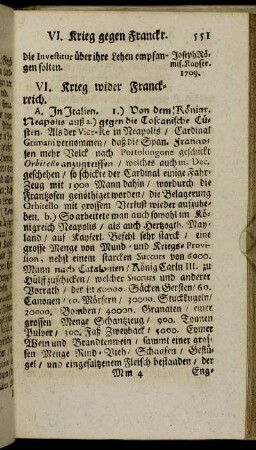 VI. Krieg gegen Franckr. 551
die Investitur über ihre Lehen empfan-
gen solten.
Joseph Rö-
mis. Kayser.
1709.
VI. Krieg wider Franck-
reich.
A. In Italien. 1.) Von dem Königr.
Neapolis auß a.) gegen die Toscanische Cü-
sten. Als der Vice-Re in Neapolis / Cardinal
Grimani vernommen / daß die Span. Franzo-
sen mehr Volck nach Portolongone geschickt
Orbitello anzugreiffen / welches auch m. Dec.
geschehen / so schickte der Cardinal einige Fahr-
Zeug mit 1900 Mann dahin / wordurch die
Frantzosen genöthiget worden / die Belagerung
Orbitello mit grossem Verlust wieder aufzuhe-
ben. b.) So arbeitete man auch sowohl im Kö-
nigreich Neapolis / als auch Hertzogth. May-
land / auf Kayserl. Befehl sehr starck / eine
grosse Menge von Mund- und Kriegs-Provi-
sion, nebst einem starcken Succurs von 6000.
Mann nach Catalonien / König Carln III. zu
Hülff zuschicken / welcher Succurs und anderer
Vorrath / der in 60000. Säcken Gersten / 60.
Canonen / 10. Mörsern / 30000. Stuckkugeln /
20000. Bomben / 40000. Granaten / einer
grossen Menge Schantzzeug / 900. Tonnen
Pulver / 300. Faß Zweyback / 5000. Eymer
Wein und Brandtenwein / sammt einer gros-
sen Menge Rind-Vieh / Schaafen / Geflü-
gel / und eingesaltzenem Fleisch bestanden / der
Mm 4 Eng-